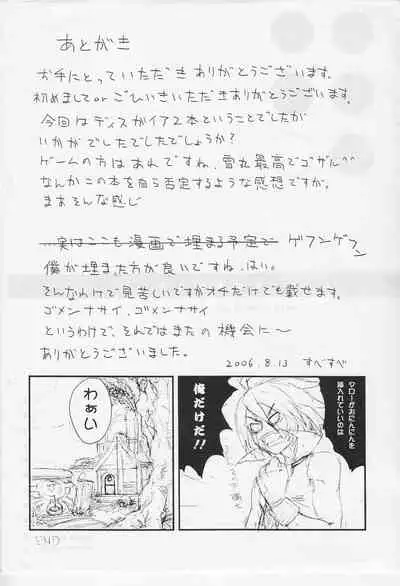 あとがき
お手にとっていただき ありがとうございます。
初めまして or ごひいきいただきありがとうございます。
今回はディスガイア2本ということでしたが
いかがでしたでしたでしょうか?
ゲームの方はあれですね、雪丸最高でゴザル^^
なんかこの本を自ら否定するような感想ですが。
まぁそんな感じ
…実はここも漫画で埋まる予定で ゲフンゲフン
僕が埋まった方が良いですね、はい。
そんなわけで見苦しいですがオチだけでも載せます。
ゴメンナサイ、ゴメンナサイ
というわけで、それではまたの機会に~
ありがとうございました。
2006.8.13 すべすべ
挿入れていいのは
俺だけだ!!
わぁい
END